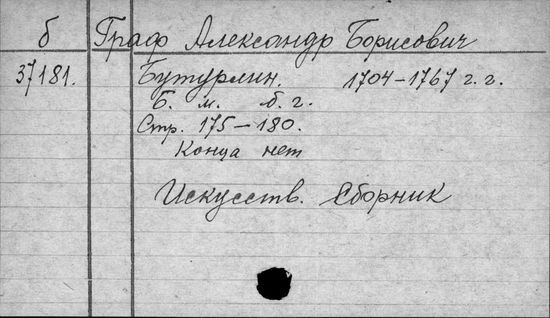 б Граф Александр Борисович
37181. Бутурлин. 1704-1767 г. г.
Б. м. б. г.
Стр. 175-180.
Конца нет
Искусств. Сборник